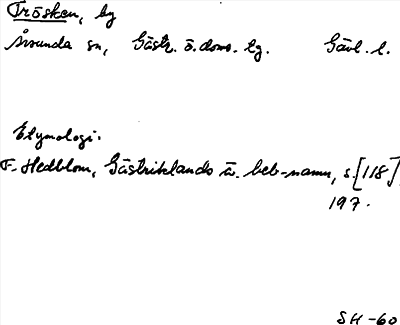 Trösken, by
Årsunda sn, Gästr. ö. doms. lg. Gävl. l.
Etymologi.
F. Hedblom, Gästriklands ä. beb-namn, s. [118],
197.
SH-60